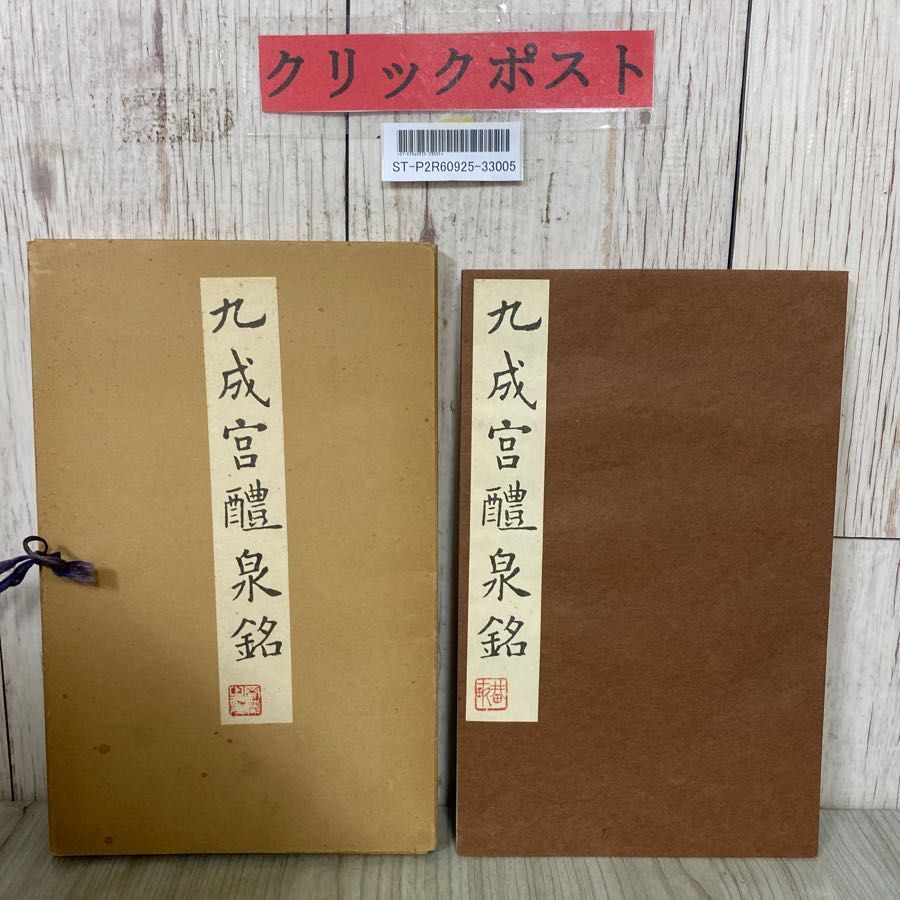 クリックポスト
ST-P2R60925-33005
九成宮醴泉銘
九成宮醴泉銘